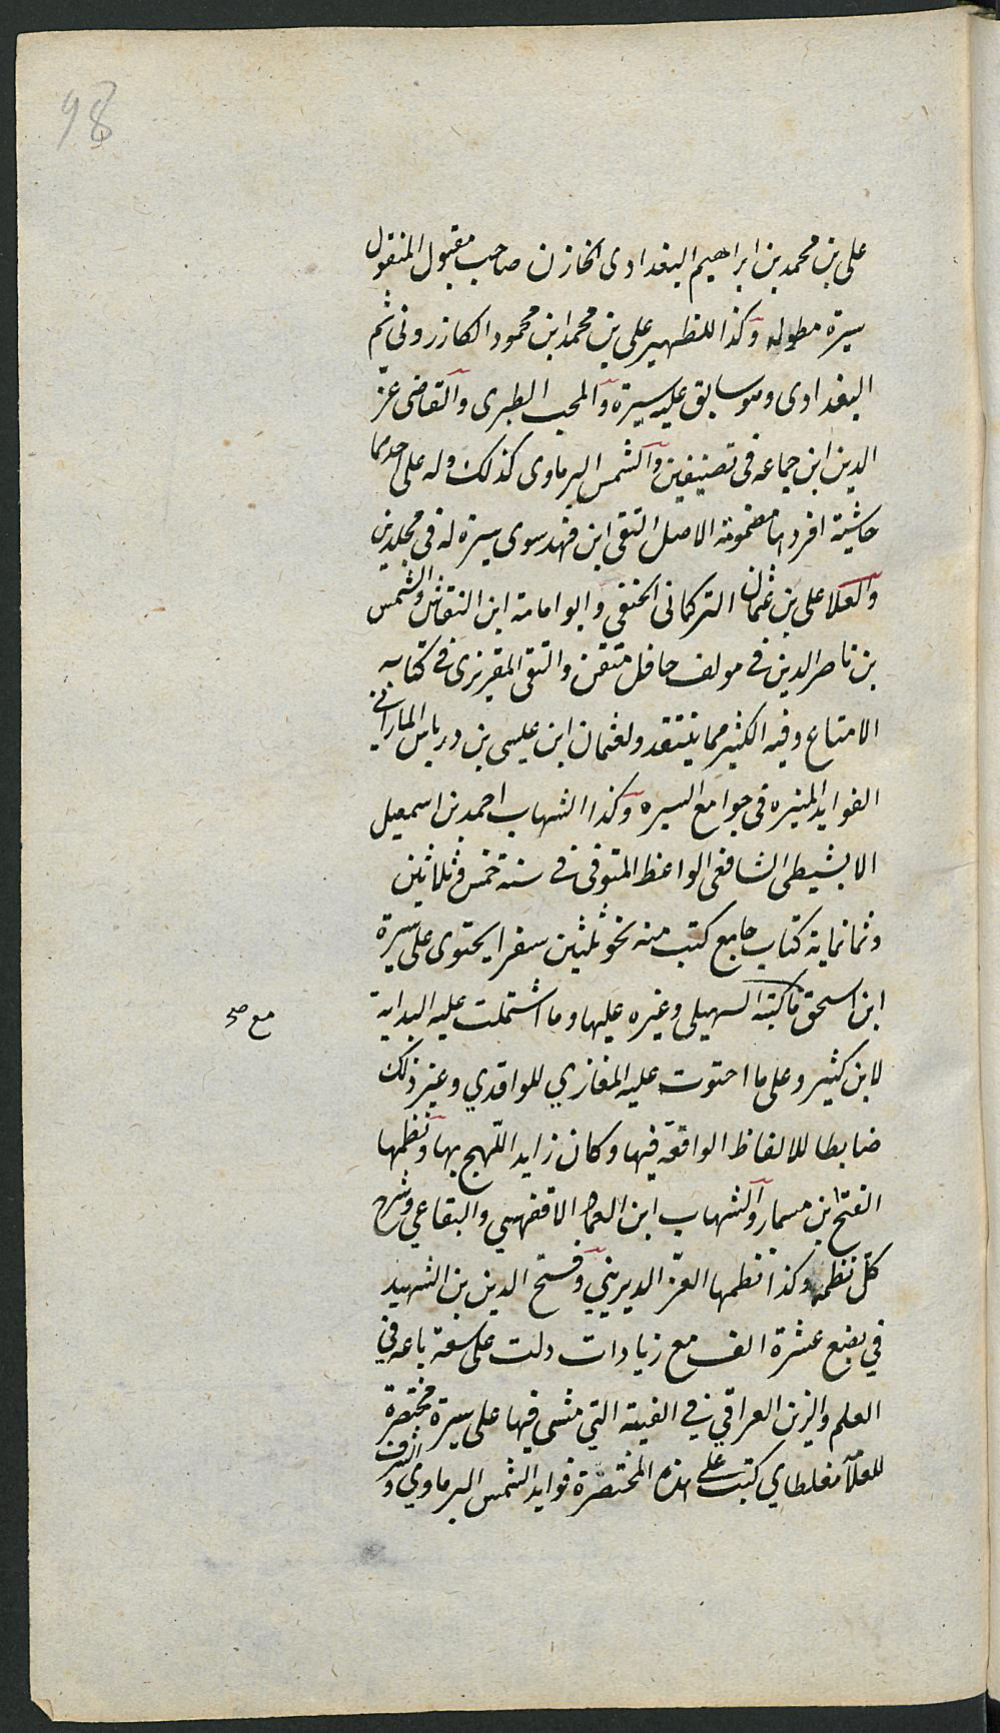 98
على بن محمد بن ابراهيم البغدادى الخازن صاحب مقبول المنقول
سيرة مطوله وكذا للظهير على بن محمد ابن محمود الكازرونى ثم
البغدادى وهو سابق عليه سيرة والمحب الطبرى والقاضى عز
الدين ابن جماعه فى تصنيفين والشمس البرماوى كذلك وله على احدهما
حاشية افردها مضمومة الاصل التقى ابن فهد سوى سيرة له فى مجلدين
والعلا على بن عثمان التركمانى الحنفى وابو امامة ابن النقاش والشمس
بن ناصر الدين فى مولف حافل متقن والتقى المقريزى فى كتابه
الامتاع وفيه الكثير مما ينتقد ولعثمان ابن عيسى بن درباس المارانى
الفوايد المنيره فى جوامع السيره وكذا الشهاب احمد بن اسمعيل
الابشيطى الشافعى الواعظ المتوفى فى سنة خمس وثلاثين
وثمانماية كتاب جامع كتب منه نحو ثلثين سفرا يحتوى على سيرة
ابن اسحق ماكتبه السهيلى وغيره عليها وما اشتملت عليه البداية
مع صح
لابن كثير وعلى ما احتوت عليه المغازي للواقدي وغير ذلك
ضابطا للالفاظ الواقعة فيها وكان زايد اللهج بها ونظمها
الفتح بن مسمار والشهاب ابن العماد الاقفهسي والبقاعي وشرح
كل نظمه وكذا نظمها العز الديريني وفتح الدين بن الشهيد
في بضع عشرة الف مع زيادات دلت على سعة باعه في
العلم والزين العراقي في الفيته التي مشى فيها على سيرة مختصرة
للعلا مغلطاي كتب على هذه المختصرة فوايد الشمس البرماوي و الشرف